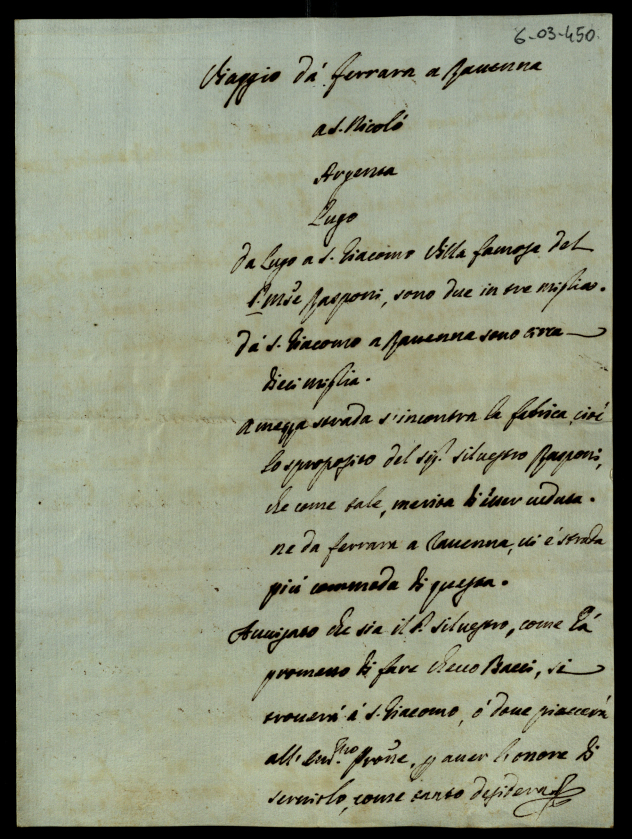 6-03-450.
Viaggio dà ferrara a Ravenna
a S. Nicolò
Argenta
Lugo
da Lugo a S. Giacomo Villa famosa del
S. Mse Rasponi, sono due in tre miglia.
dà S. Giacomo a Ravenna sono circa
dieci miglia.
a mezza strada s'incontra la fabrica, cioè
lo sproposito del sig.r Silvestro Rasponi,
che come tale, merita di esser veduta.
ne da ferrara a Ravenna, vi è strada
più commoda di questa.
Avvisato che sia il S. Silvestro, come hà
promesso di fare Checco Bacci, si
troverà à S. Giacomo, ó dove piacerà
all' Em.mo Prone, p aver l'onore di
servirlo, come tanto desidera